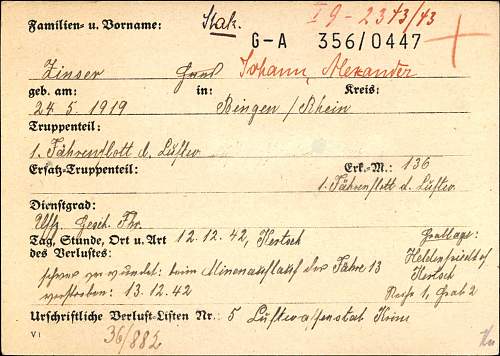 Familien- u. Vorname: Stak. I 9 - 2313/43
G-A 356/0447
Zinser Johann, Alexander
geb. am: in: Kreis:
24.5.1919 Bingen/Rhein
Truppenteil:
1. Fährenflott d. Luftw.
Ersatz-Truppenteil: Erk.-M.: 136
1. Fährenflott d. Luftw.
Dienstgrad:
Uffz. Gesch. Fhr.
Tag, Stunde, Ort u. Art 12.12.42, Kertsch Grablage:
des Verlustes: Heldenfriedhof
schwer verwundet: beim Minenauflauf der Fähre 13 Kertsch
verstorben: 13.12.42 Reihe 1, Grab 2
Urschriftliche Verlust-Listen Nr.: 5 Luftwaffenstab Krim
V I 36/882